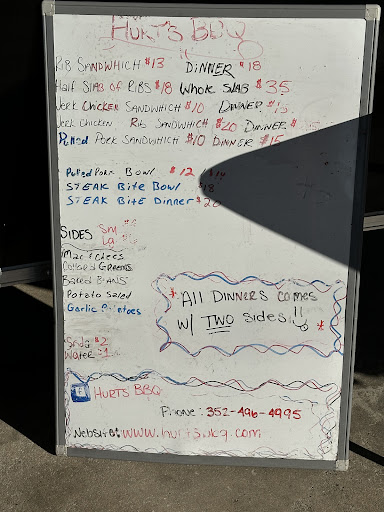 HURT'S BBQ
Rib SANDWHICH $13 DINNER $18
Half Slab of Ribs $18 Whole Slab $35
Jerk Chicken SANDWHICH $10 DINNER $15
Jerk Chicken Rib SANDWHICH $20 DINNER $
Pulled Pork SANDWHICH $10 DINNER $15
Pulled Pork Bowl $12
STEAK Bite Bowl $18
STEAK Bite Dinner $20
SIDES Sm
La
Mac & Chees
Collard Greens
Baked Beans
Potato Salad
Garlic Potatoes
Soda $2
Water $1
* All DINNERS comes
w/ TWO sides!! *
f HURTS BBQ
Phone: 352-496-4995
Website: www.hurtsbbq.com